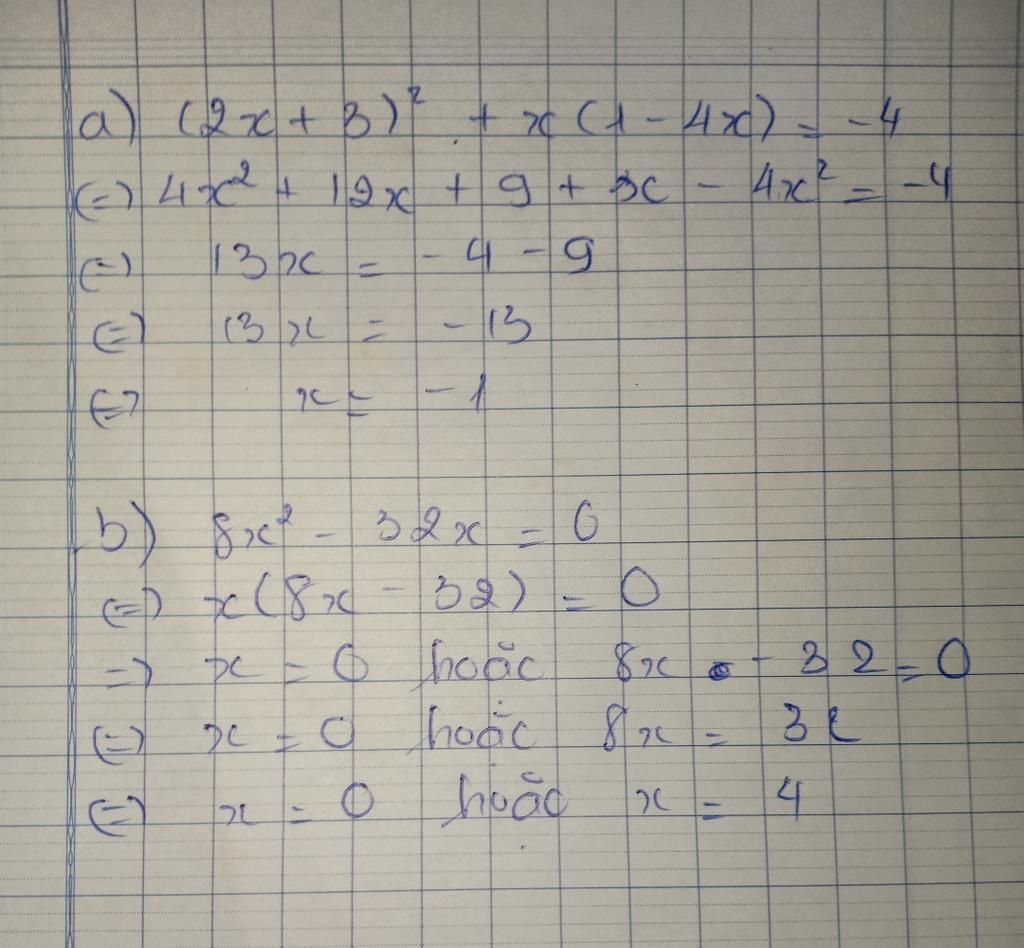 a) (2x + 3)² + x(1 - 4x) = -4
(=) 4x² + 12x + 9 + x - 4x² = -4
(=) 13x = -4 - 9
(=) 13x = -13
(=) x = -1
b) 8x² - 32x = 0
(=) x(8x - 32) = 0
=) x = 0 hoặc 8x - 32 = 0
(=) x = 0 hoặc 8x = 32
(=) x = 0 hoặc x = 4